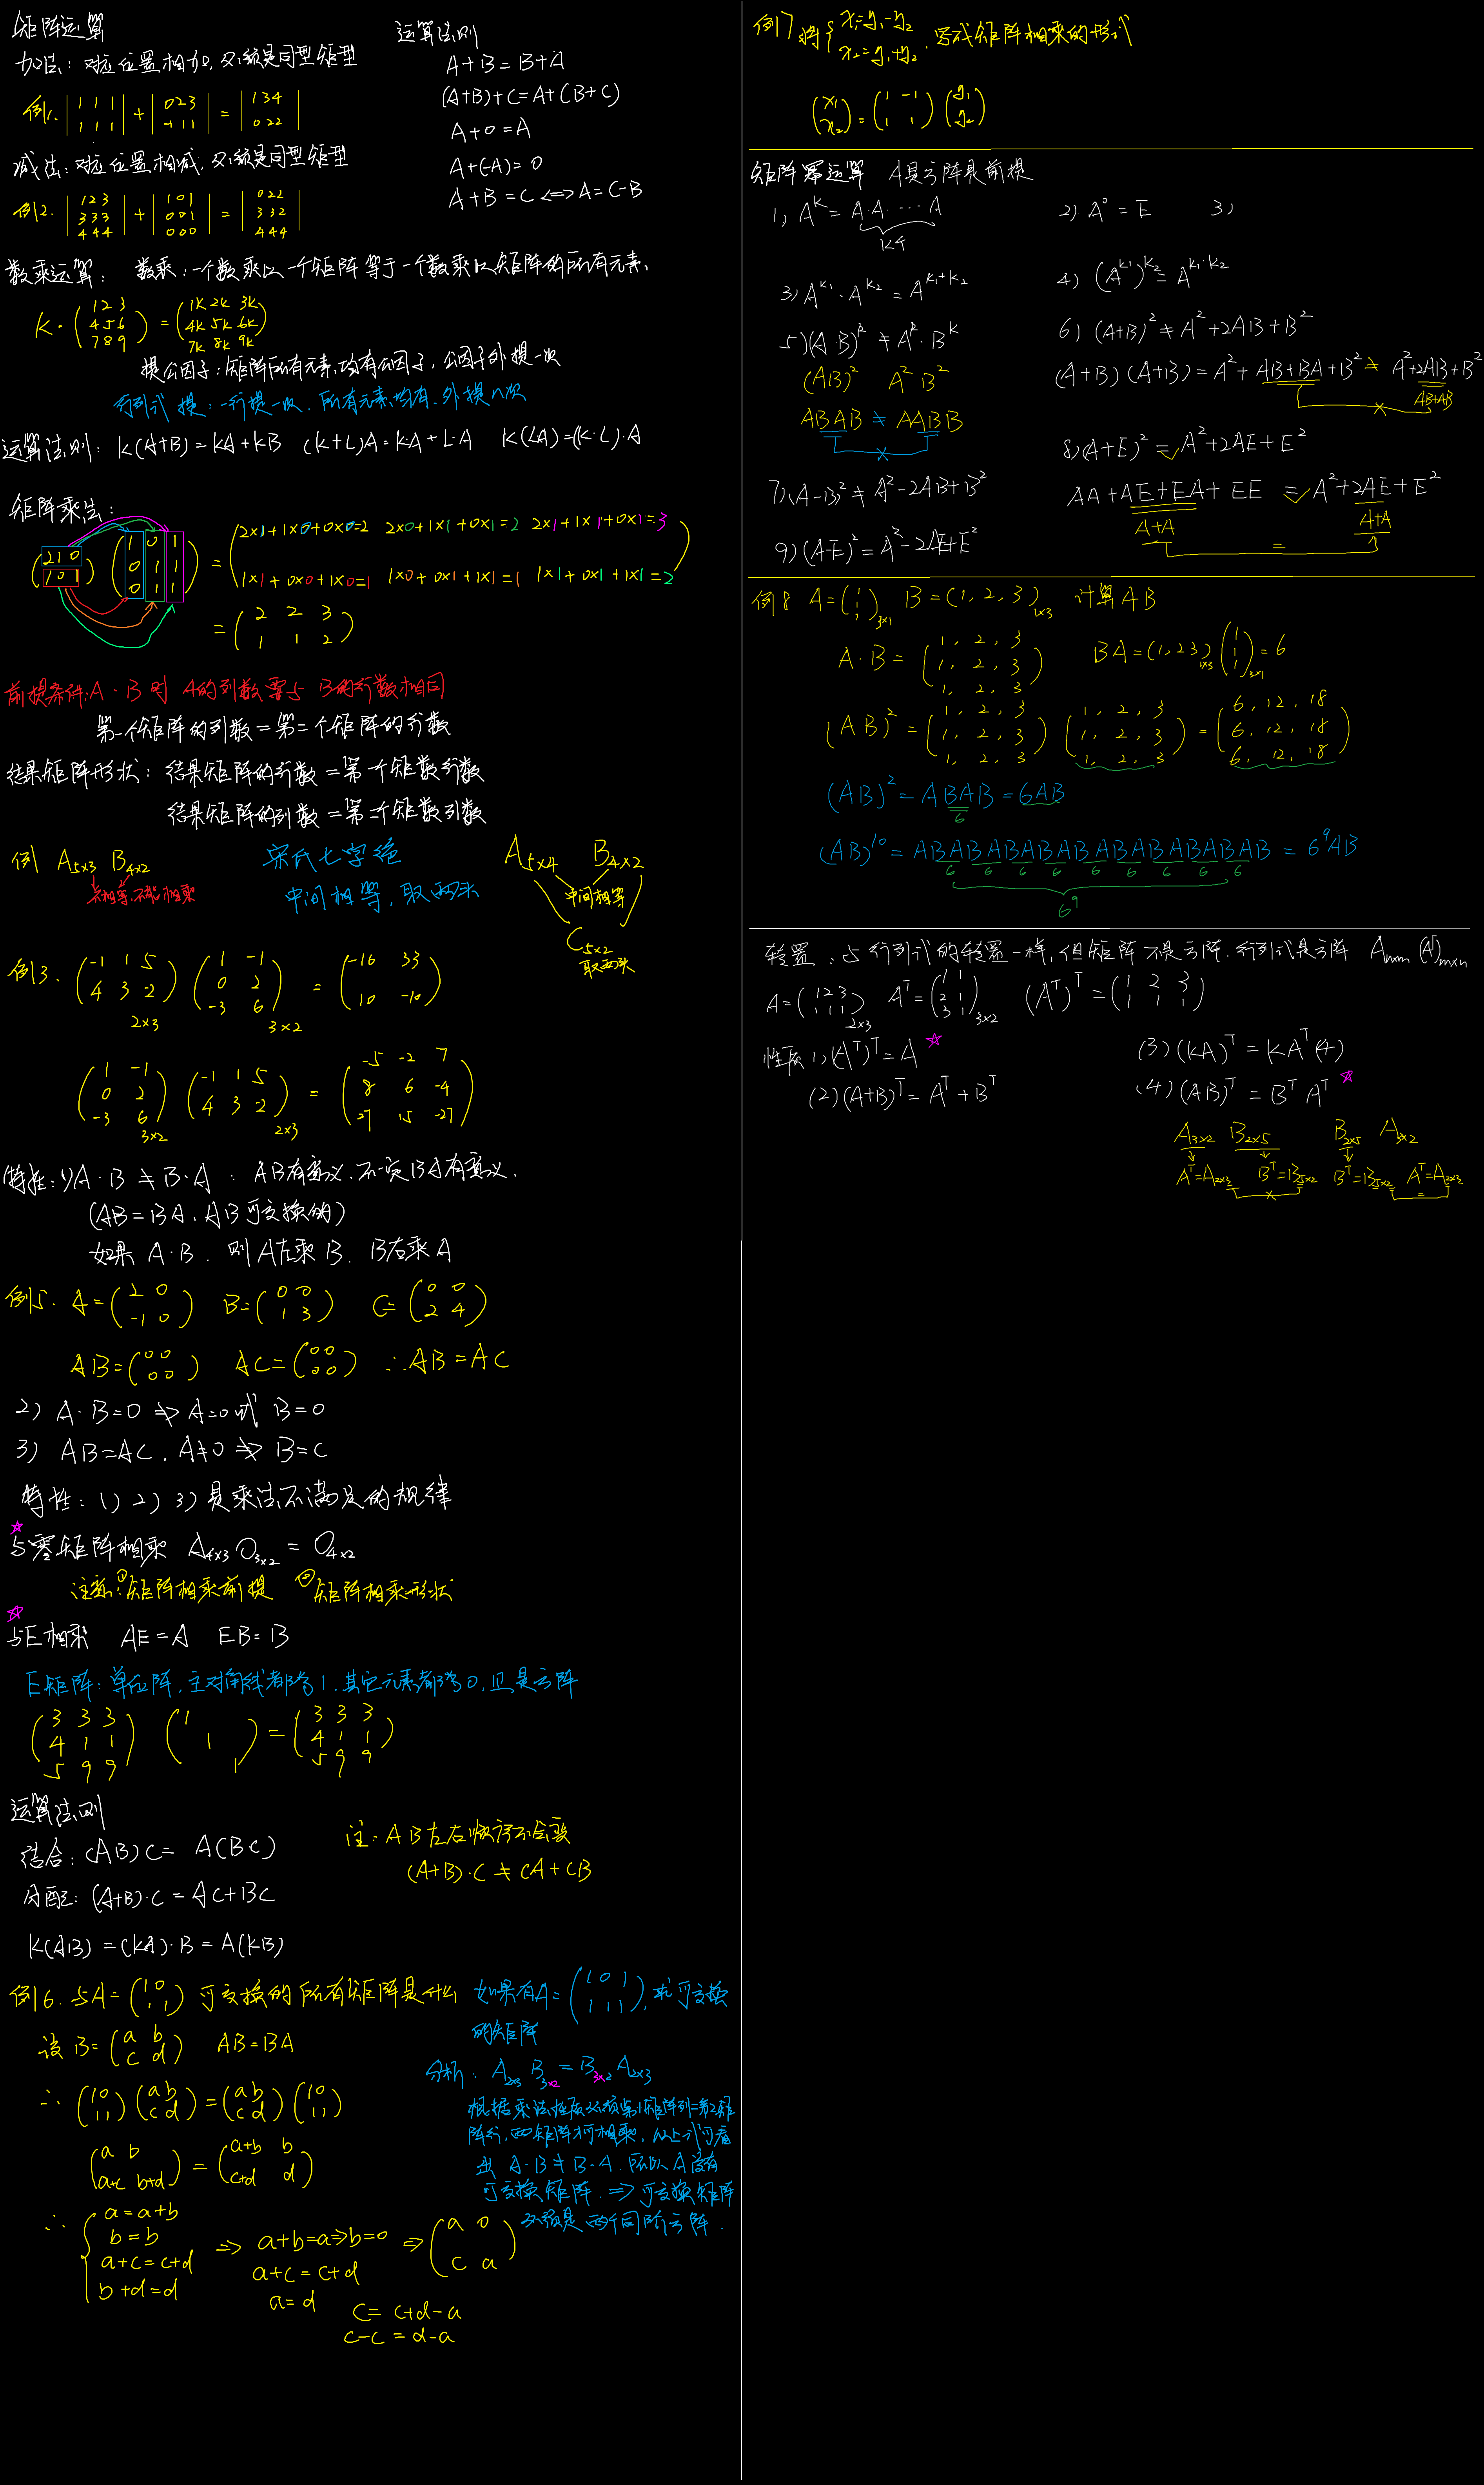 矩阵运算
加法：对应位置相加，必须是同型矩型
例1. | 1 1 1 / 1 1 1 | + | 0 2 3 / -1 1 1 | = | 1 3 4 / 0 2 2 |
减法：对应位置相减，必须是同型矩型
例2. | 1 2 3 / 3 3 3 / 4 4 4 | + | 1 0 1 / 0 0 1 / 0 0 0 | = | 0 2 2 / 3 3 2 / 4 4 4 |
运算法则
A+B=B+A
(A+B)+C=A+(B+C)
A+0=A
A+(-A)=0
A+B=C⇔A=C-B
数乘运算：数乘：一个数乘以一个矩阵等于一个数乘以矩阵的所有元素.
K·(1 2 3 / 4 5 6 / 7 8 9) = (1K 2K 3K / 4K 5K 6K / 7K 8K 9K)
提公因子：矩阵所有元素均有公因子，公因子外提一次
行列式提：一行提一次，所有元素均有，外提n次
运算法则：K(A+B)=KA+KB (K+L)A=KA+L·A K(LA)=(K·L)·A
矩阵乘法：
(2 1 0 / 1 0 1) (1 0 1 / 0 1 1 / 0 1 1) = (2×1+1×0+0×0=2 2×0+1×1+0×1=2 2×1+1×1+0×1=3 / 1×1+0×0+1×0=1 1×0+0×1+1×1=1 1×1+0×1+1×1=2)
= (2 2 3 / 1 1 2)
前提条件：A·B时 A的列数要与 B的行数相同
第一个矩阵的列数=第二个矩阵的行数
结果矩阵形状：结果矩阵的行数=第一个矩数行数
结果矩阵的列数=第二个矩数列数
例 A5×3 B4×2
不相等，不能相乘
宋氏七字绝
中间相等，取两头
A5×4 B4×2
中间相等
C5×2
取两头
例3. (-1 1 5 / 4 3 -2)2×3 (1 -1 / 0 2 / -3 6)3×2 = (-16 33 / 10 -10)
(1 -1 / 0 2 / -3 6)3×2 (-1 1 5 / 4 3 -2)2×3 = (-5 -2 7 / 8 6 -4 / 27 15 -27)
特性：1)A·B≠B·A：AB有意义，不一定BA有意义.
(AB=BA，AB可交换的)
如果 A·B，则A左乘B，B右乘A
例5. A=(2 0 / -1 0) B=(0 0 / 1 3) C=(0 0 / 2 4)
AB=(0 0 / 0 0) AC=(0 0 / 0 0) ∴AB=AC
2) A·B=0 ⇏ A=0或 B=0
3) AB=AC，A≠0 ⇏ B=C
特性：1) 2) 3) 是乘法不满足的规律
☆
与零矩阵相乘 A4×3 O3×2 = O4×2
注意：①矩阵相乘前提 ②矩阵相乘形状
☆
与E相乘 AE=A EB=B
E矩阵：单位阵，主对角线都为1，其它元素都为0，且是方阵
(3 3 3 / 4 1 1 / 5 9 9) (1 / 1 / 1) = (3 3 3 / 4 1 1 / 5 9 9)
运算法则
结合：(AB)C= A(BC)
分配：(A+B)·C=AC+BC
K(AB)=(KA)·B=A(KB)
注：AB左右顺序不会变
(A+B)·C≠CA+CB
例6. 与A=(1 0 / 1 1) 可交换的所有矩阵是什么
设 B=(a b / c d) AB=BA
∴ (1 0 / 1 1)(a b / c d)=(a b / c d)(1 0 / 1 1)
(a b / a+c b+d) = (a+b b / c+d d)
∴ { a=a+b
b=b
a+c=c+d
b+d=d
⇒ a+b=a⇒b=0 ⇒ (a 0 / c a)
a+c=c+d
a=d
c= c+d-a
c-c=d-a
如果有A=(1 0 1 / 1 1 1)，求可交换
的矩阵
分析：A2×3 B3×2 = B3×2 A2×3
根据乘法性质必须第1矩阵列=第2矩
阵行，两矩阵才可相乘，从上式可看
出 A·B≠B·A，所以A没有
可交换矩阵 ⇒ 可交换矩阵
必须是两个同阶方阵.
例7 将{ x1=y1-y2 / x2=y1+y2，写成矩阵相乘的形式
(x1 / x2)=(1 -1 / 1 1)(y1 / y2)
矩阵幂运算 A是方阵是前提
1) A^K=A·A·…A
K个
2) A^0=E 3)
3) A^K1·A^K2=A^(K1+K2)
4) (A^K1)^K2=A^(K1·K2)
5)(AB)^K≠A^K·B^K
(AB)² A²B²
ABAB≠AABB
×
6) (A+B)²≠A²+2AB+B²
(A+B)(A+B)=A²+AB+BA+B²≠A²+2AB+B²
AB+AB
×
7)(A-B)²≠A²-2AB+B²
8)(A+E)²=A²+2AE+E²
AA+AE+EA+EE=A²+2AE+E²
A+A A+A
=
9)(A-E)²=A²-2AE+E²
例8 A=(1 / 1 / 1)3×1 B=(1，2，3)1×3 计算AB
A·B=(1，2，3 / 1，2，3 / 1，2，3) BA=(1，2 3)1×3 (1 / 1 / 1)3×1=6
(AB)²=(1，2，3 / 1，2，3 / 1，2，3)(1，2，3 / 1，2，3 / 1，2，3)=(6，12，18 / 6，12，18 / 6，12，18)
(AB)²=ABAB=6AB
6
(AB)^10=ABABABABABABABABABAB=6^9AB
6 6 6 6 6 6 6 6 6
6^9
转置：与行列式的转置一样，但矩阵不是方阵，行列式是方阵 An×m (A^T)m×n
A=(1 2 3 / 1 1 1)2×3 A^T=(1 1 / 2 1 / 3 1)3×2 (A^T)^T=(1 2 3 / 1 1 1)
性质 1)(A^T)^T=A ☆
(2)(A+B)^T=A^T+B^T
(3)(KA)^T=KA^T(4)
(4)(AB)^T=B^T A^T ☆
A3×2 B2×5 B2×5 A3×2
A^T=A2×3 B^T=B5×2 B^T=B5×2 A^T=A2×3
× =